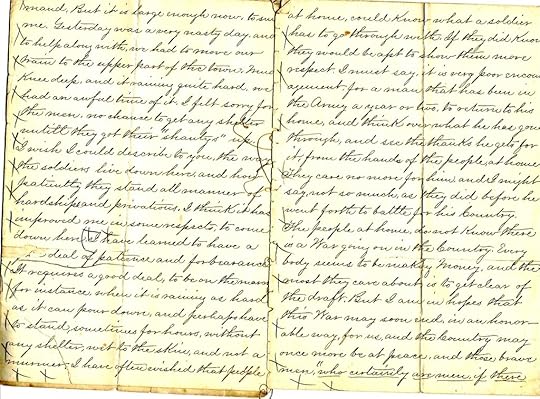 mand. But it is large enough now, to suit
me. Yesterday was a very nasty day, and
to help along with, we had to move our
train to the upper part of the town. Mud
Knee deep, and it raining quite hard, we
had an awful time of it. I felt sorry for
the men, no chance to get any shelter
untill they got their "shantys" up.
I wish I could describe to you, the way
the soldiers live down here, and how
patiently they stand all manner of
hardships and privations. I think it has
improved me in some respects, to come
down here. I have learned to have a
deal of patience and forbearance
It requires a good deal, to be on the march
for instance, where it is raining as hard
as it can pour down, and perhaps have
to stand, sometimes for hours, without
any shelter, wet to the skin, and not a
murmer. I have often wished that people
at home, could Know what a soldier
has to go through with. If they did Know
they would be apt to show them more
respect. I must say, it is very poor encour
agement for a man that has been in
the Army a year or two, to return to his
home, and think over what he has gone
through, and see the thanks he gets for
it from the hands of the people, at home
They care no more for him, and I might
say, not so much, as they did before he
went forth to battle for his Country.
The people at home, do not Know there
is a War going on in the Country. Every
body seems to be making Money, and the
most they care about is to get clear of
the draft. But I am in hopes that
this War may soon end, in an honor
able way, for us, and the Country may
once more be at peace, and those brave
men, "who certainly are men, if there